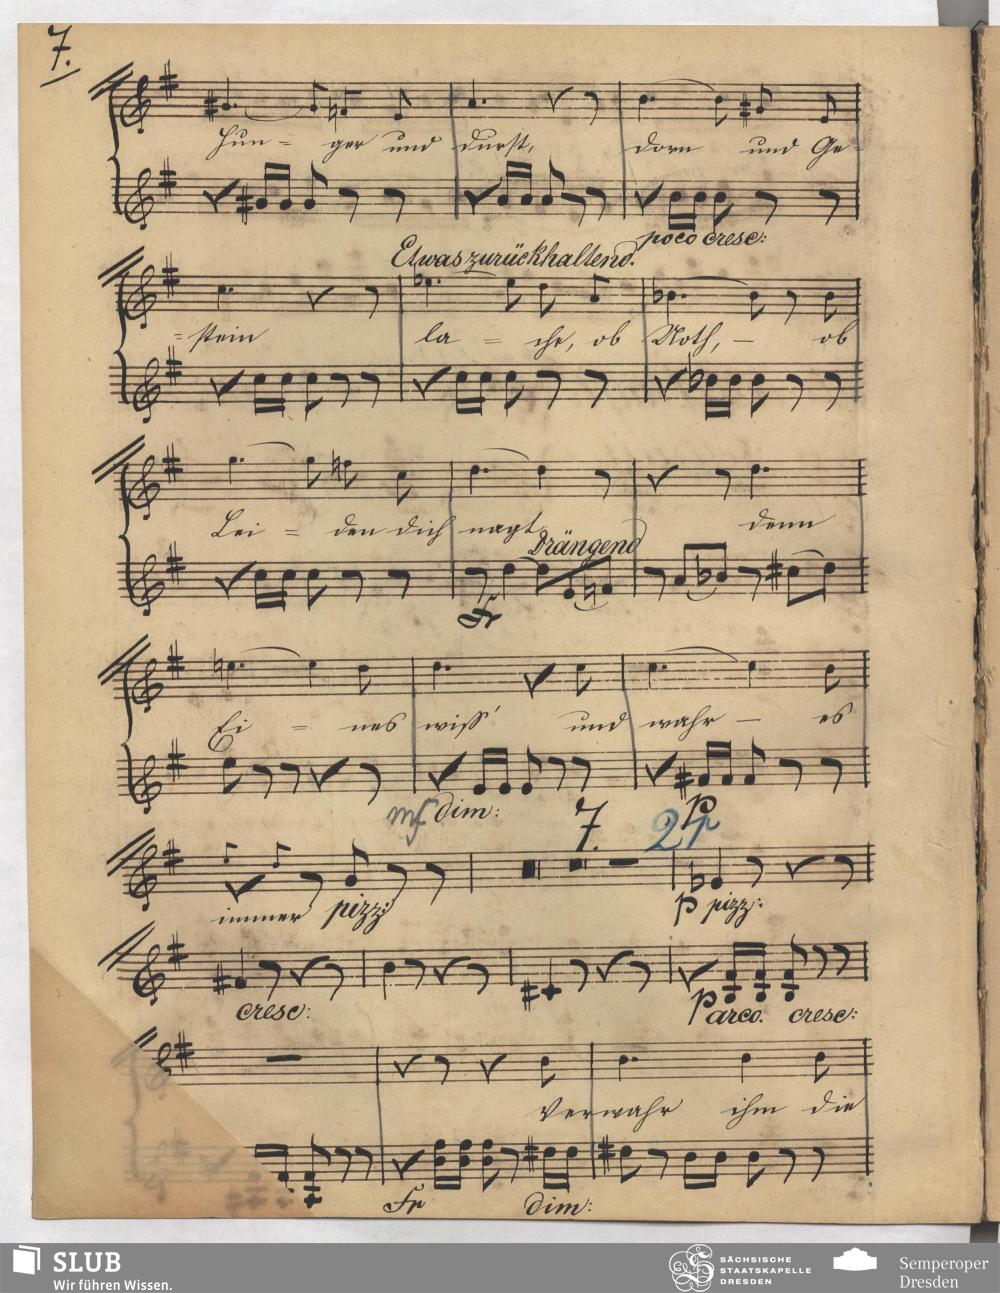 7.
Hun = ger und durst, dorn und Ge-
poco cresc:
Etwas zurückhaltend.
=stein la = che, ob Noth, — ob
Lei = den dich nagt denn
Drängend
Fp
Ei = nes wiss' und wahr — es
mf dim: p
7. 21
immer pizz: p pizz:
cresc: p arco. cresc:
Verwahr ihm die
Fp dim:
SLUB
Wir führen Wissen.
SÄCHSISCHE
STAATSKAPELLE
DRESDEN
Semperoper
Dresden